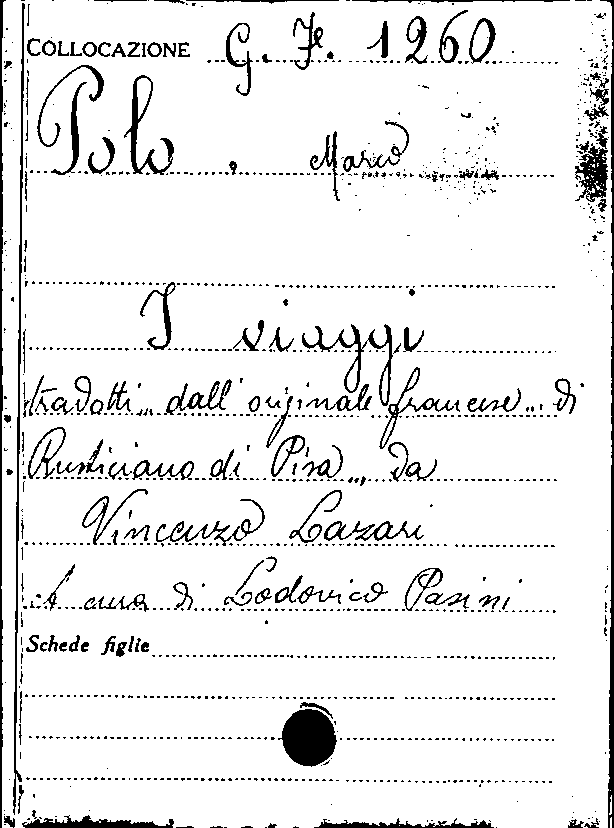 COLLOCAZIONE G. Fe. 1260
Polo . Marco
I viaggi
tradotti... dall'originale francese... di
Rusticiano di Pisa... da
Vincenzo Lazari
A cura di Lodovico Pasini
Schede figlie